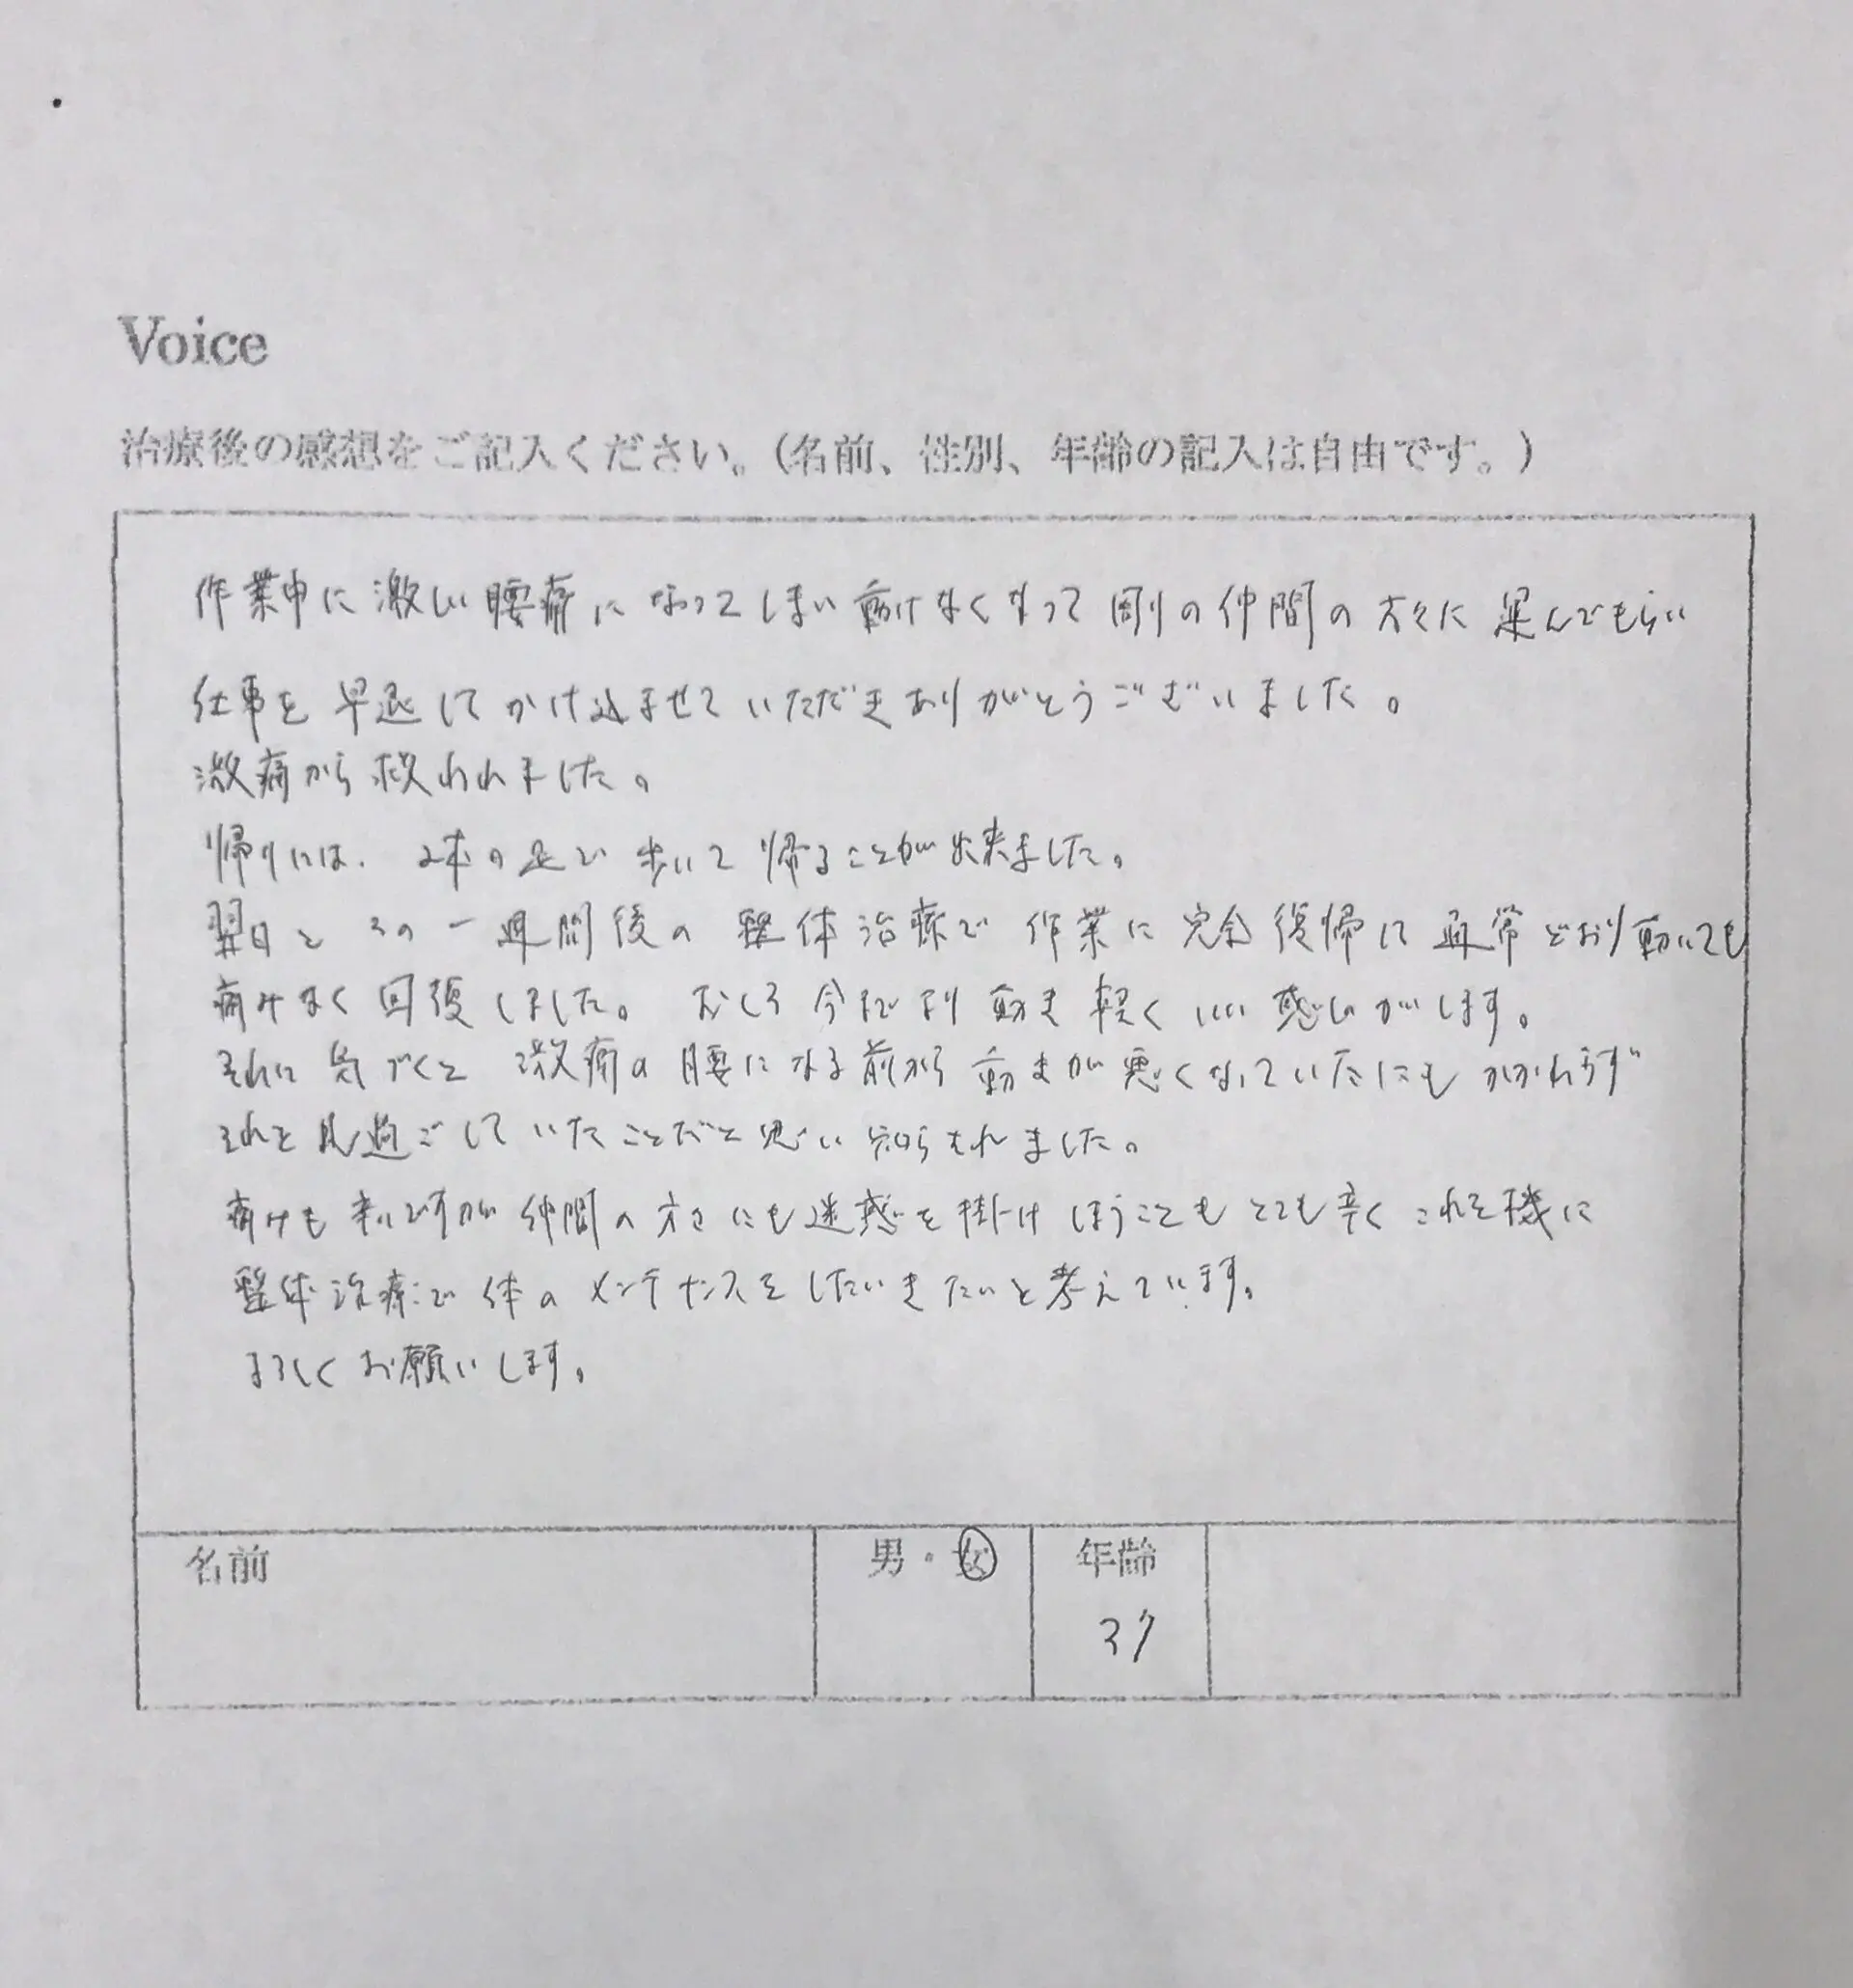 Voice
治療後の感想をご記入ください。(名前、性別、年齢の記入は自由です。)
作業中に激しい腰痛になってしまい動けなくなって 仲間の方々に運んでもらい
仕事を早退してかけ込ませていただきありがとうございました。
激痛から救われました。
帰りには、2本の足で歩いて帰ることが出来ました。
翌日とその一週間後の整体治療で作業に完全復帰して通常どおり動いても
痛みなく回復しました。むしろ今までより動き軽くいい感じがします。
それに気づくと激痛の腰になる前から動きが悪くなっていたにもかかわらず
それを見過ごしていたことだと思い知らされました。
痛みも辛いですが仲間の方々にも迷惑を掛けしまうこともとても辛くこれを機に
整体治療で体のメンテナンスをしたいきたいと考えています。
よろしくお願いします。
名前 男・女 年齢
37